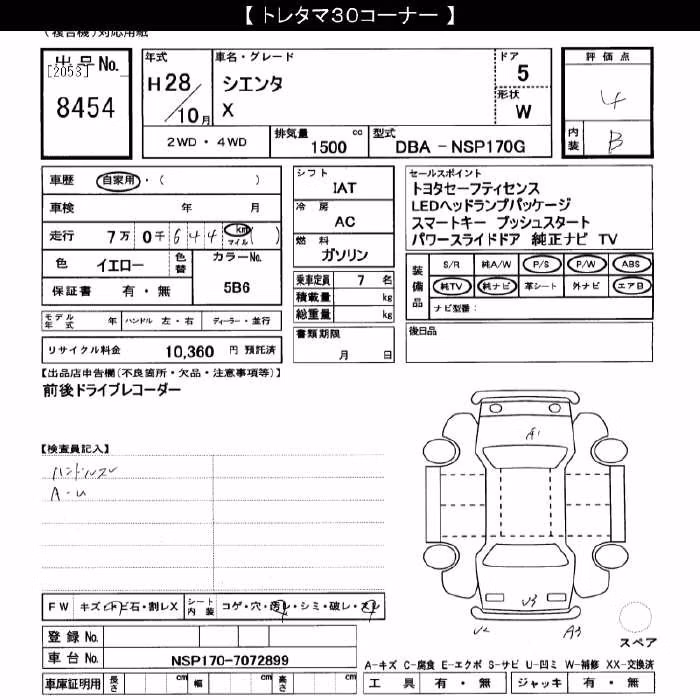 【 トレタマ30コーナー 】
(複合機)対応用紙
出品No.
[2053]
8454
年式
H28/10月
車名・グレード
シエンタ
X
ドア
5
形状
W
評価点
4
内装
B
2WD・4WD
排気量 1500 cc
型式 DBA - NSP170G
車歴 自家用・( )
車検 年 月
走行 7万0千644 km マイル ( )
色 イエロー 色替
カラーNo. 5B6
保証書 有・無
モデル年式 年 ハンドル 左・右 ディーラー・並行
リサイクル料金 10,360 円 預託済
シフト
IAT
冷房
AC
燃料
ガソリン
乗車定員 7 名
積載量 kg
総重量 kg
書類期限
月 日
セールスポイント
トヨタセーフティセンス
LEDヘッドランプパッケージ
スマートキー プッシュスタート
パワースライドドア 純正ナビ TV
装備品
S/R 純A/W P/S P/W ABS
純TV 純ナビ 革シート 外ナビ エアB
ナビ型番:
後日品
【出品店申告欄(不良箇所・欠品・注意事項等)】
前後ドライブレコーダー
【検査員記入】
ハンドルスレ
A・U
A1
U3
U2
A3
スペア
FW キズ・トビ石・割レX
シート内装 コゲ・穴・汚レ・シミ・破レ・スレ
登録 No.
車台 No. NSP170-7072899
車庫証明用 長さ cm 幅 cm 高さ cm
A-キズ C-腐食 E-エクボ S-サビ U-凹ミ W-補修 XX-交換済
工具 有・無 ジャッキ 有・無